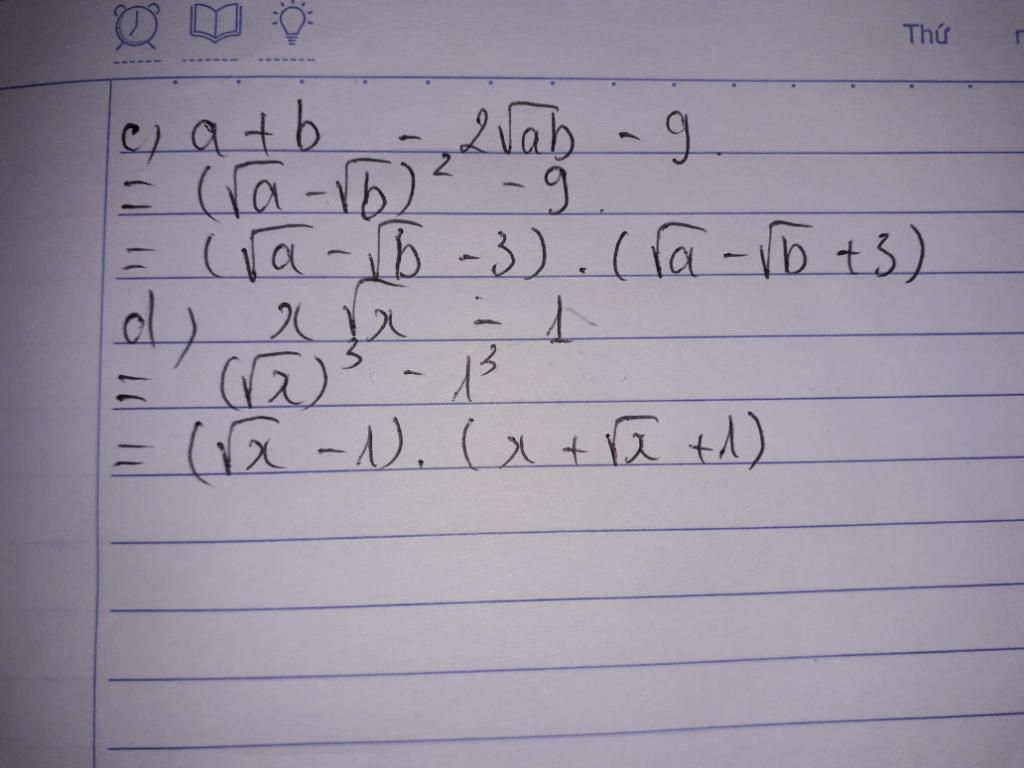 Thứ
c) a + b - 2√ab - 9.
= (√a - √b)² - 9.
= (√a - √b - 3) . (√a - √b + 3)
d) x √x - 1
= (√x)³ - 1³
= (√x - 1). (x + √x + 1)